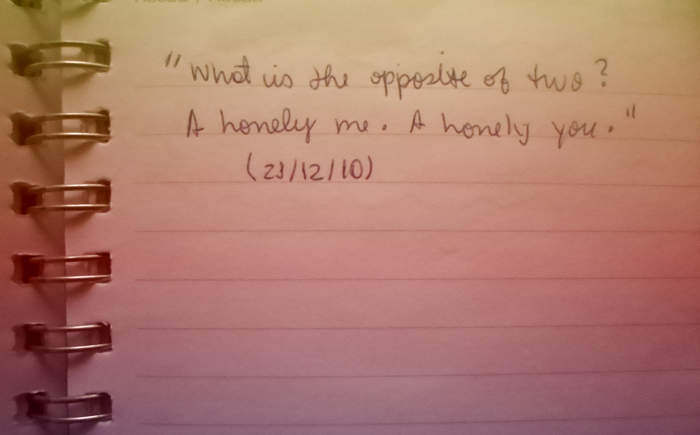 "What is the opposite of two?
A lonely me. A lonely you."
(21/12/10)